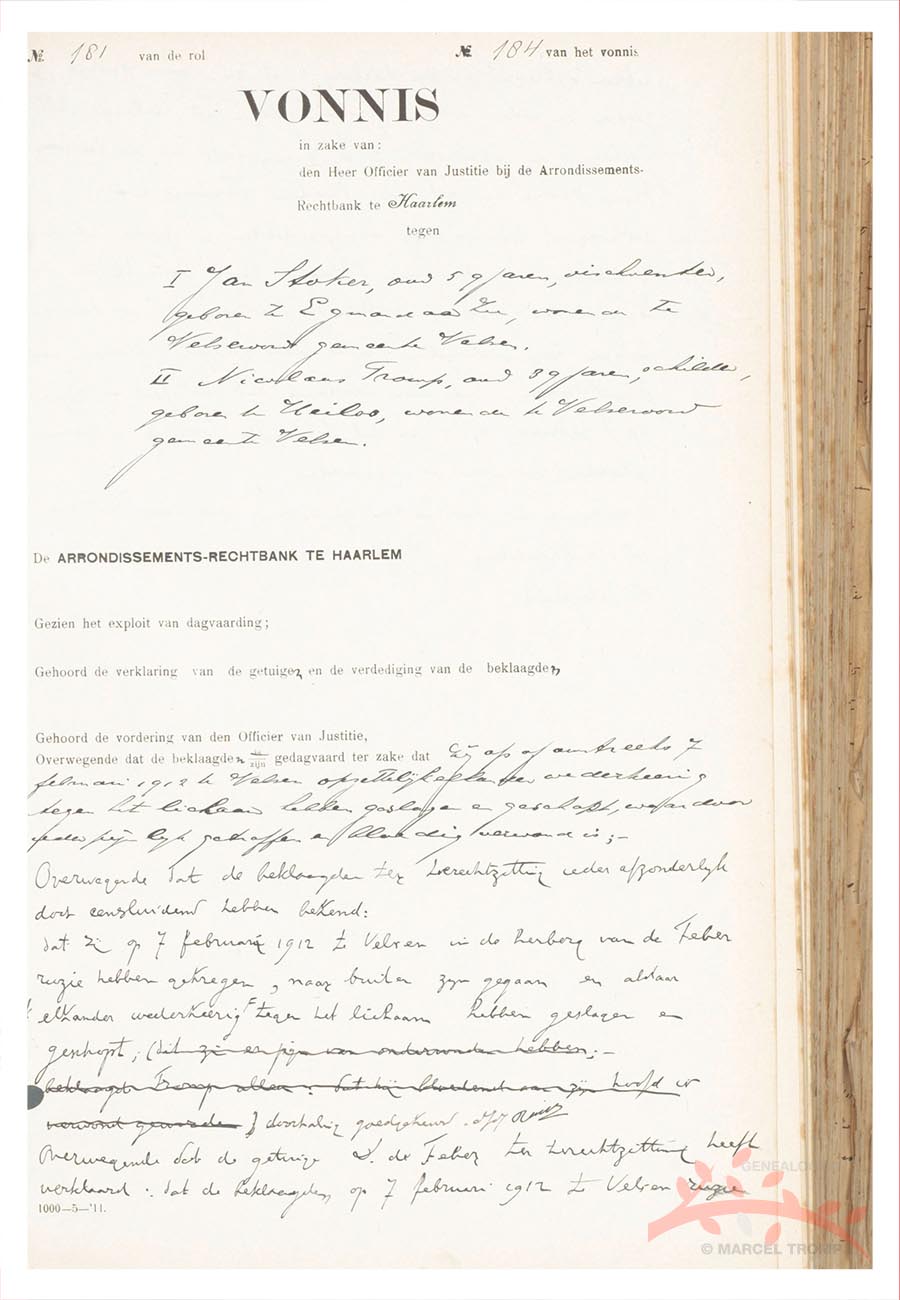 №. 181 van de rol № 184 van het vonnis
VONNIS
in zake van:
den Heer Officier van Justitie bij de Arrondissements-
Rechtbank te Haarlem
tegen
I Jan Stoker, oud 59 jaren, vischventer,
geboren te Egmond aan Zee, wonende te
Velseroord gemeente Velsen.
II Nicolaas Tromp, oud 39 jaren, schilder,
geboren te Heiloo, wonende te Velseroord
gemeente Velsen.
De ARRONDISSEMENTS-RECHTBANK TE HAARLEM
Gezien het exploit van dagvaarding;
Gehoord de verklaring van de getuigen en de verdediging van de beklaagden
Gehoord de vordering van den Officier van Justitie,
Overwegende dat de beklaagden zijn gedagvaard ter zake dat zij op of omstreeks 7
februari 1912 te Velsen opzettelijk elkander wederkeerig
tegen het lichaam hebben geslagen en geschopt, waardoor
ieder pijn heeft en bloedig verwond is;-
Overwegende dat de beklaagden ter terechtzitting ieder afzonderlijk
doch eensluidend hebben bekend:
dat zij op 7 februari 1912 te Velsen in de herberg van de Feber
ruzie hebben gekregen, naar buiten zijn gegaan en aldaar
elkander wederkeerig tegen het lichaam hebben geslagen en
geschopt; (dat zij er pijn van ondervonden hebben;-
beklaagde Tromp alleen: dat hij bloedend aan zijn hoofd is
verwond geworden) doorhaling goedgekeurd.
Overwegende dat de getuige de Feber ter terechtzitting heeft
verklaard: dat de beklaagden op 7 februari 1912 te Velsen ruzie
1000—5—'11.
GENEALO
© MARCEL TROMP